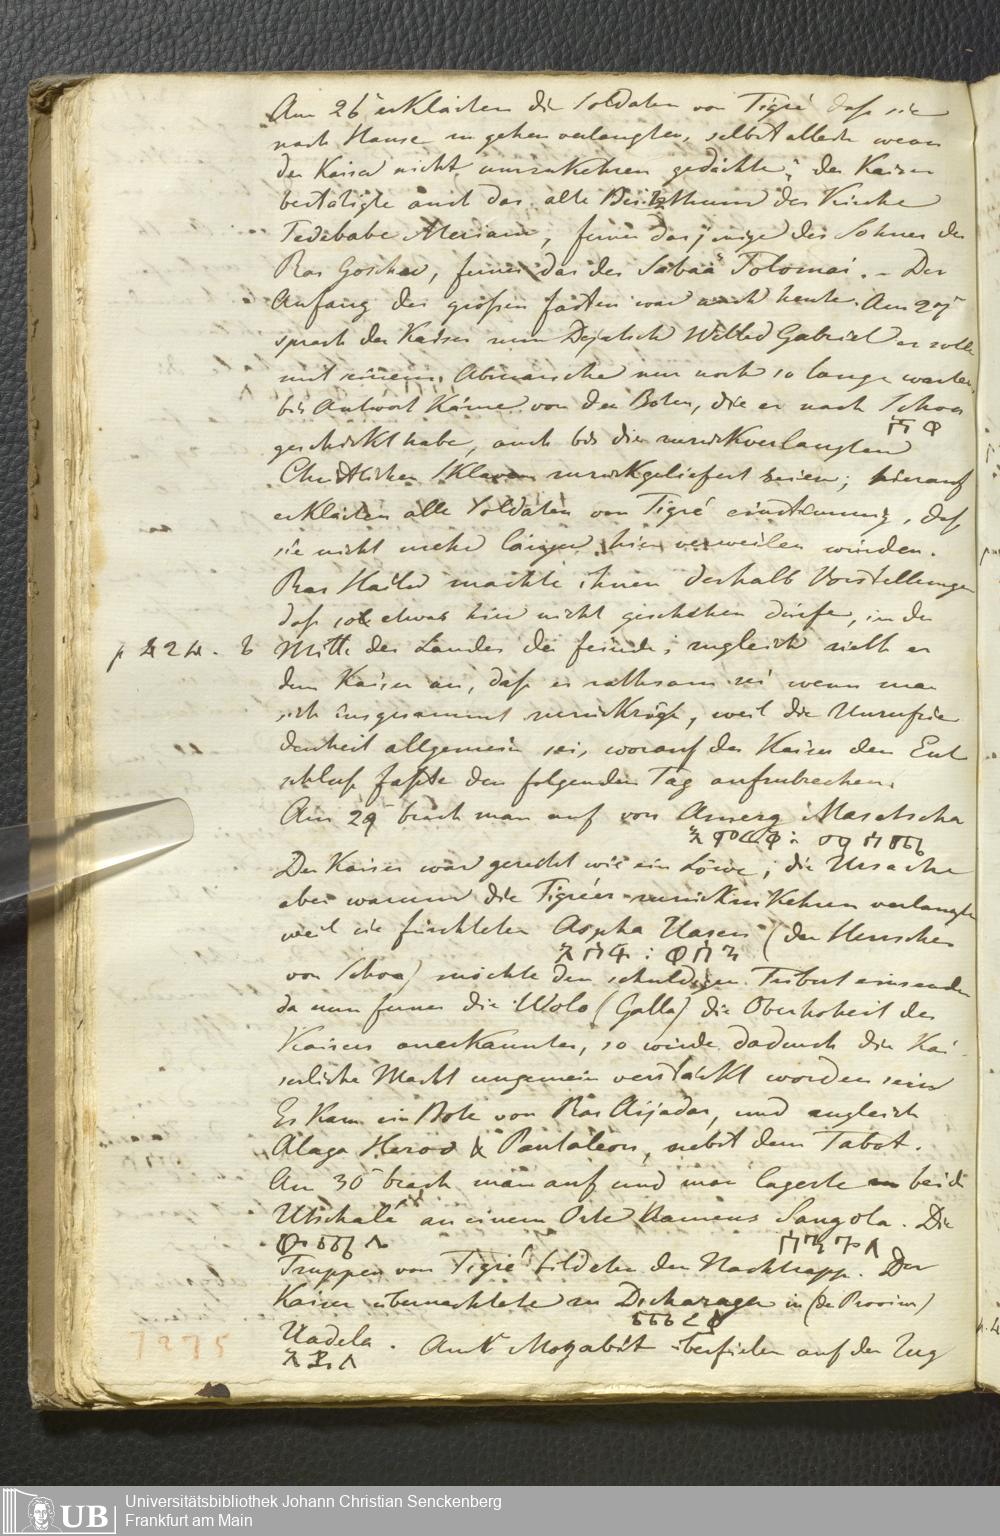 Am 26ᵗ erklärten die Soldaten von Tigré daß sie
nach Hause zu gehen verlangten, selbst allein wenn
der Kaiser nicht umzukehren gedächte; der Kaiser
bestätigte auch das alte Besitzthum der Kirche
Tedebabe Meriam, ferner dasjenige des Sohnes des
Ras Goscho, ferner das des Tolomai. – Der
Anfang der großen fasten war auch heute. Am 27ᵗ
sprach der Kaiser zum Dejatsch Welled Gabriel er solle
mit seinem Abmarsche nur noch so lange warten
bis Antwort käme von den Boten, die er nach Schoa
geschickt habe, auch bis die zurückverlangten
Christlichen Sklaven zurückgeliefert seien; hierauf
erklärten alle Soldaten von Tigré einstimmig, daß
sie nicht mehr länger hier verweilen würden.
Ras Hailu machte ihnen deshalb Vorstellungen
daß so etwas hier nicht geschehen dürfe, in der
Mitte des Landes der feinde; zugleich rieth er
dem Kaiser an, daß es rathsam sei wenn man
sich insgesammt zurückzöge, weil die Unzufrie
denheit allgemein sei, worauf der Kaiser den Ent
schluß faßte den folgenden Tag aufzubrechen.
Am 29ᵗ brach man auf von Amerg Masetscha
Der Kaiser war gerecht wie ein Löwe; die Ursache
aber warum die Tigréer zurückzukehren verlangten
weil sie fürchteten Aspha Uasen (der Herrscher
አስፋ : ወሰን
von Schoa) möchte den schuldigen Tribut einsenden
da nun ferner die Wolo (Galla) die Oberhoheit des
Kaisers anerkannten, so würde dadurch die Kai
serliche Macht ungemein verstärkt worden sein
Es kam ein Bote von Ras Aijadar, und zugleich
Alaga Herod & Pantaleon, nebst dem Tabot.
Am 30ᵗ brach man auf und man lagerte bei
Utschalé an einem Orte Namens Sangola. Die
Truppen von Tigré bildeten den Nachtrapp. Der
Kaiser übernachtete zu in (der Provinz)
Uadela. Am überfielen auf dem Zug
7275
UB
Universitätsbibliothek Johann Christian Senckenberg
Frankfurt am Main